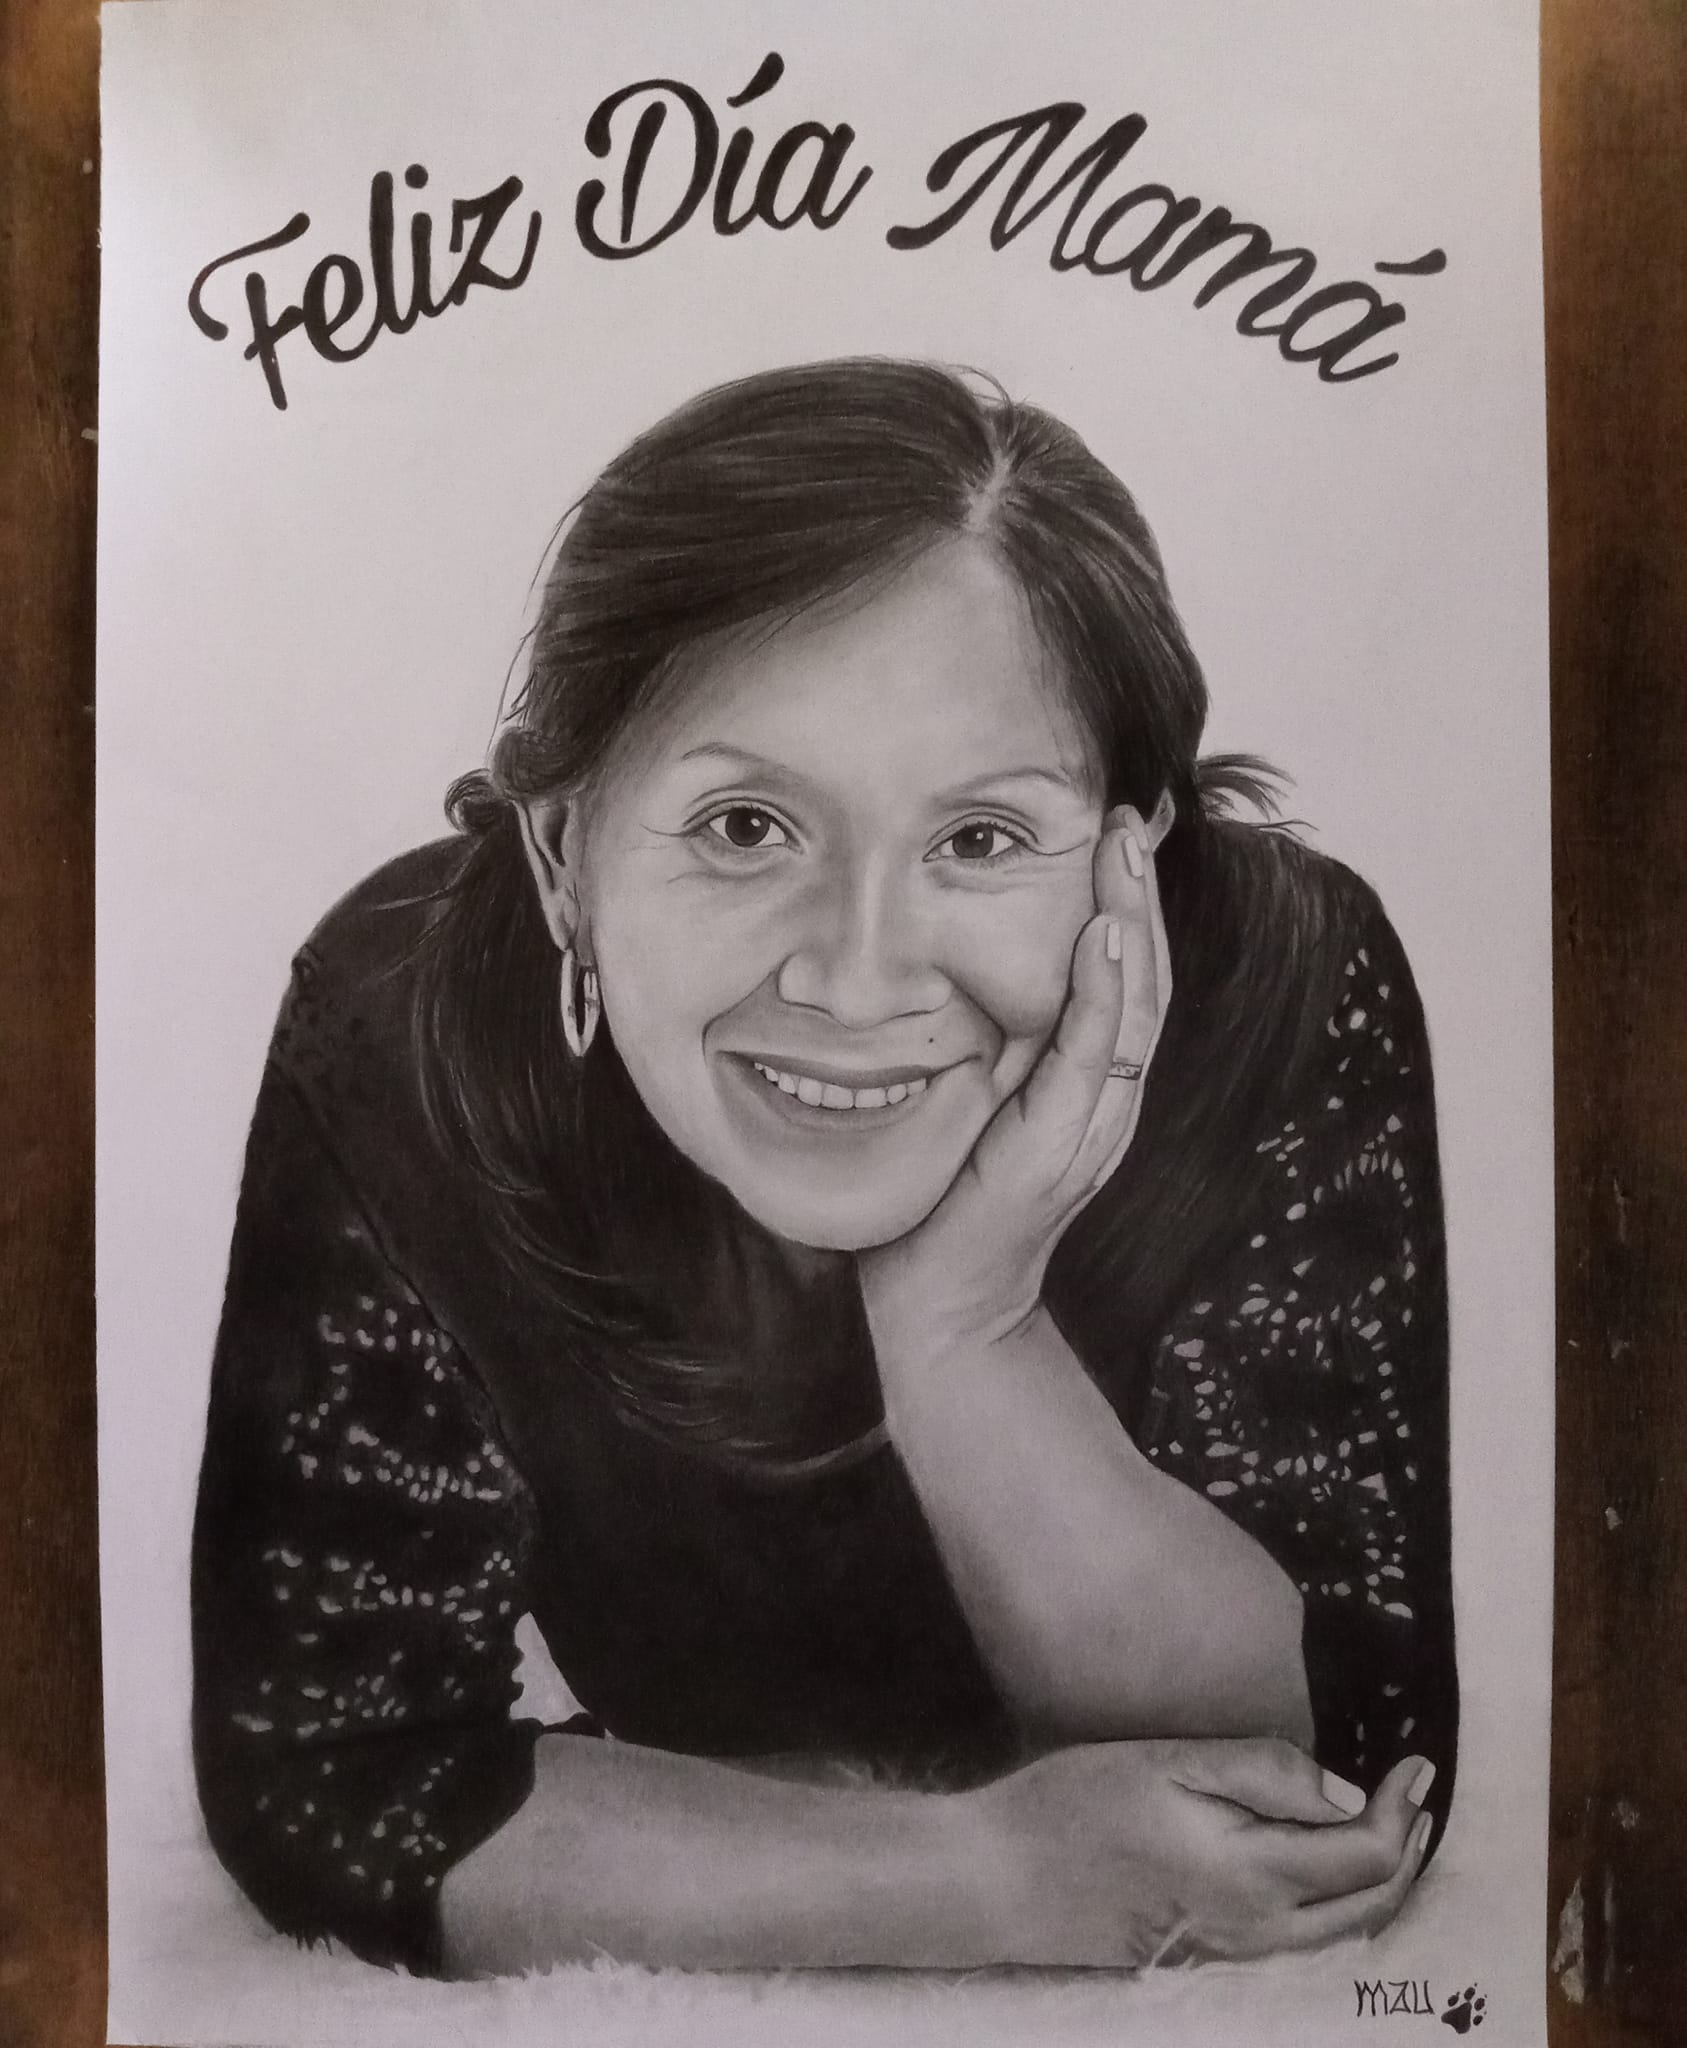 Feliz Día Mamá
MAU